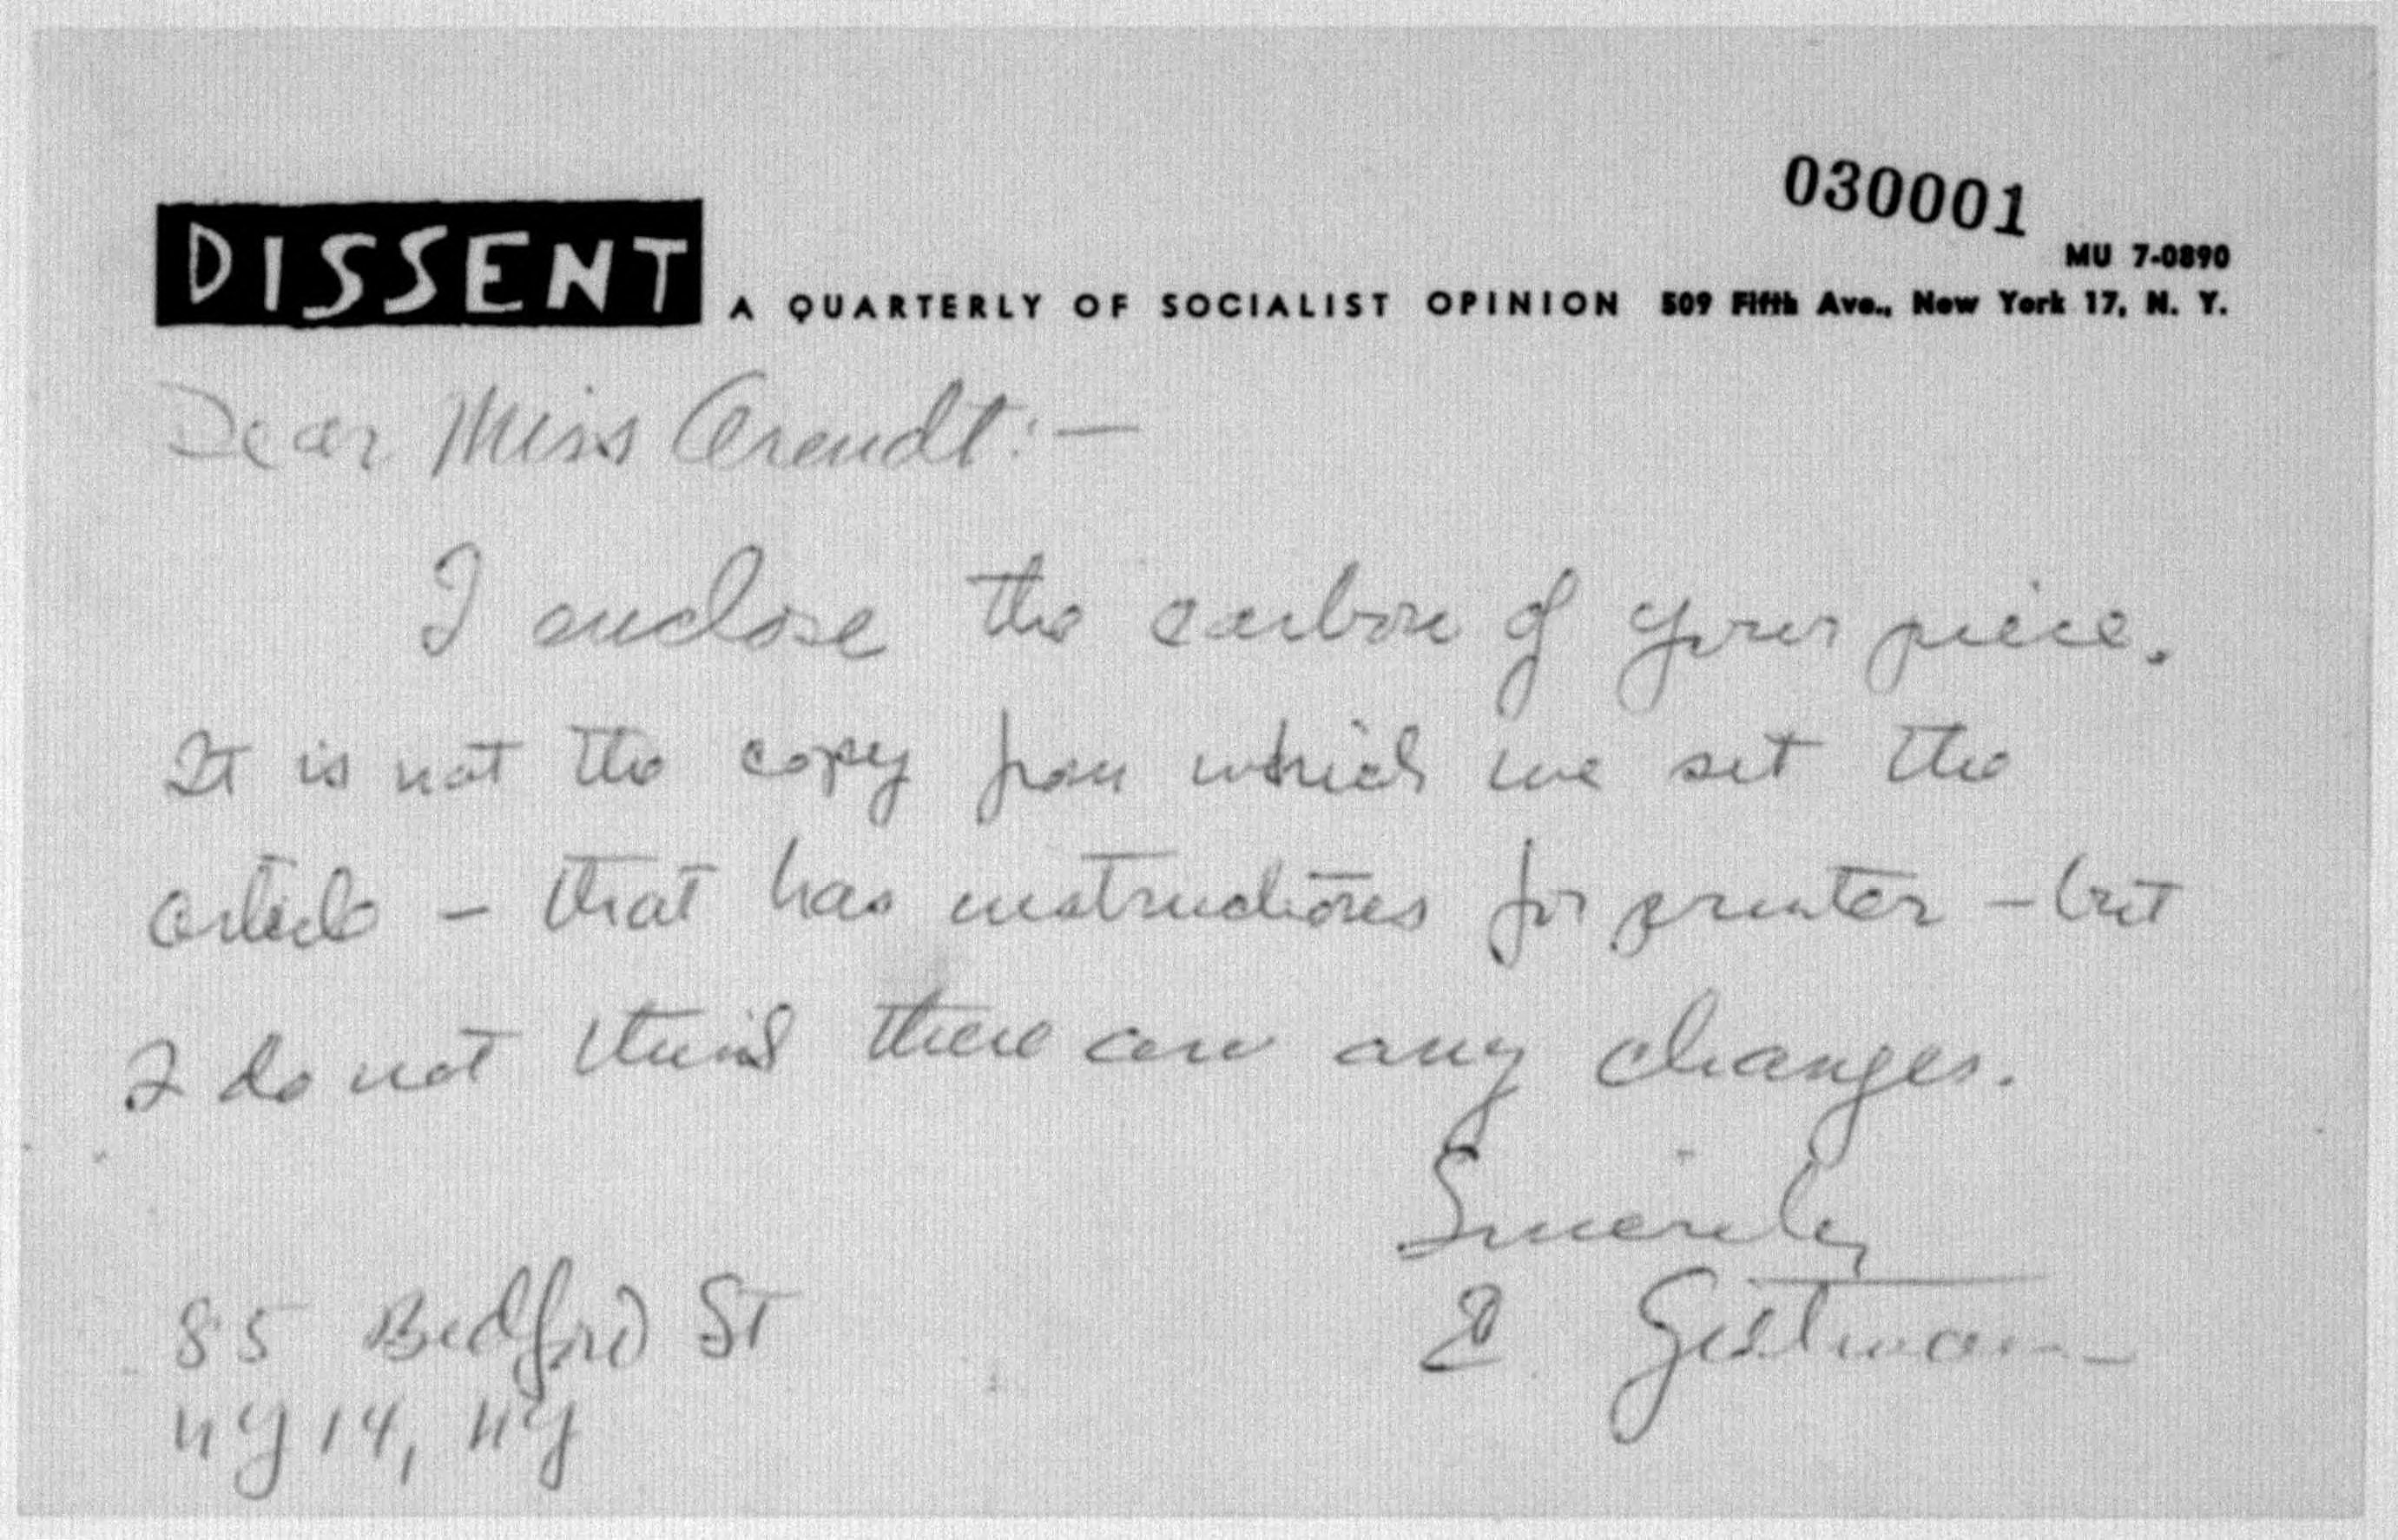 030001
MU 7-0890
DISSENT A QUARTERLY OF SOCIALIST OPINION 509 Fifth Ave., New York 17, N. Y.
Dear Miss Arendt:—
I enclose the carbon of your piece.
It is not the copy from which we set the
article — that has instructions for printer — but
I do not think there are any changes.
Sincerely
E
85 Bedford St
NY 14, NY